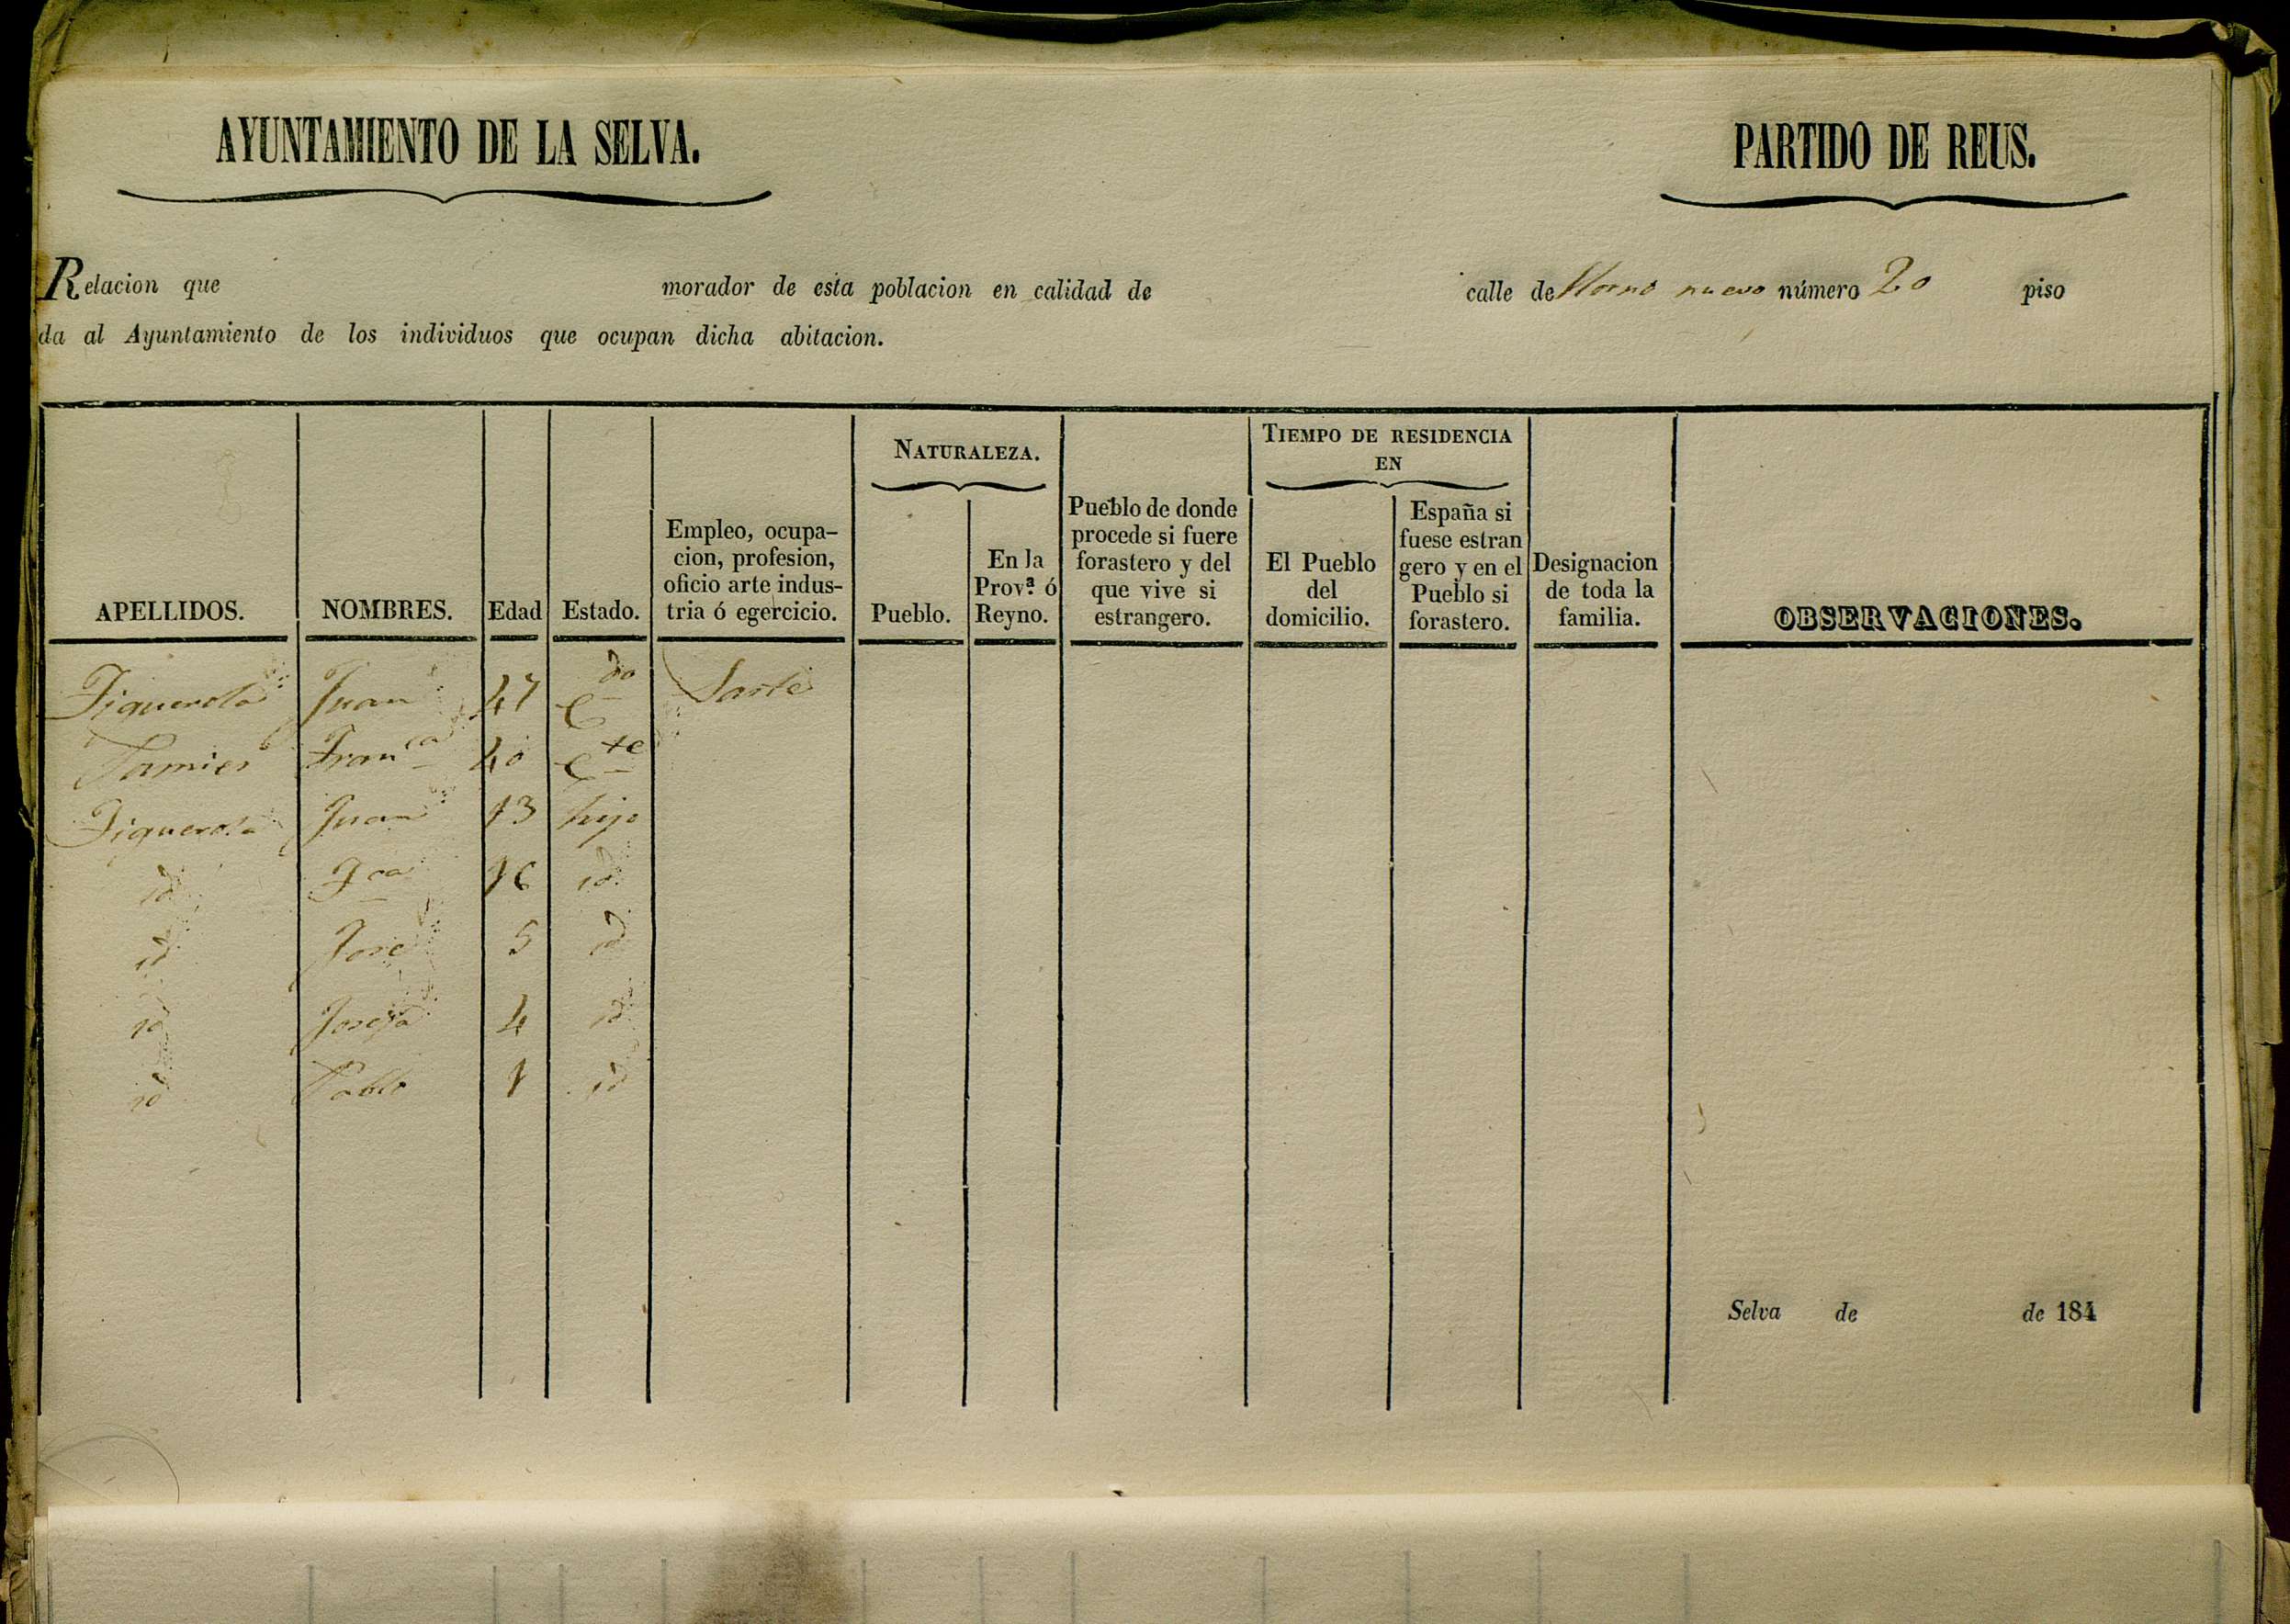 AYUNTAMIENTO DE LA SELVA. PARTIDO DE REUS.
Relacion que morador de esta poblacion en calidad de calle de Horno nuevo número 20 piso
da al Ayuntamiento de los individuos que ocupan dicha abitacion.
APELLIDOS. NOMBRES. Edad Estado. Empleo, ocupa-cion, profesion, oficio arte indus-tria ó egercicio. NATURALEZA. Pueblo. En la Prov.ª ó Reyno. Pueblo de donde procede si fuere forastero y del que vive si estrangero. TIEMPO DE RESIDENCIA EN El Pueblo del domicilio. España si fuese estran gero y en el Pueblo si forastero. Designacion de toda la familia. OBSERVACIONES.
Figuerola Juan 47 C.do Sastre
Franca 40 C.te
Figuerola Juan 13 hijo
id Fca 16 id
id Jose 5 id
id Josefa 4 id
id Pablo 1 id
Selva de de 184